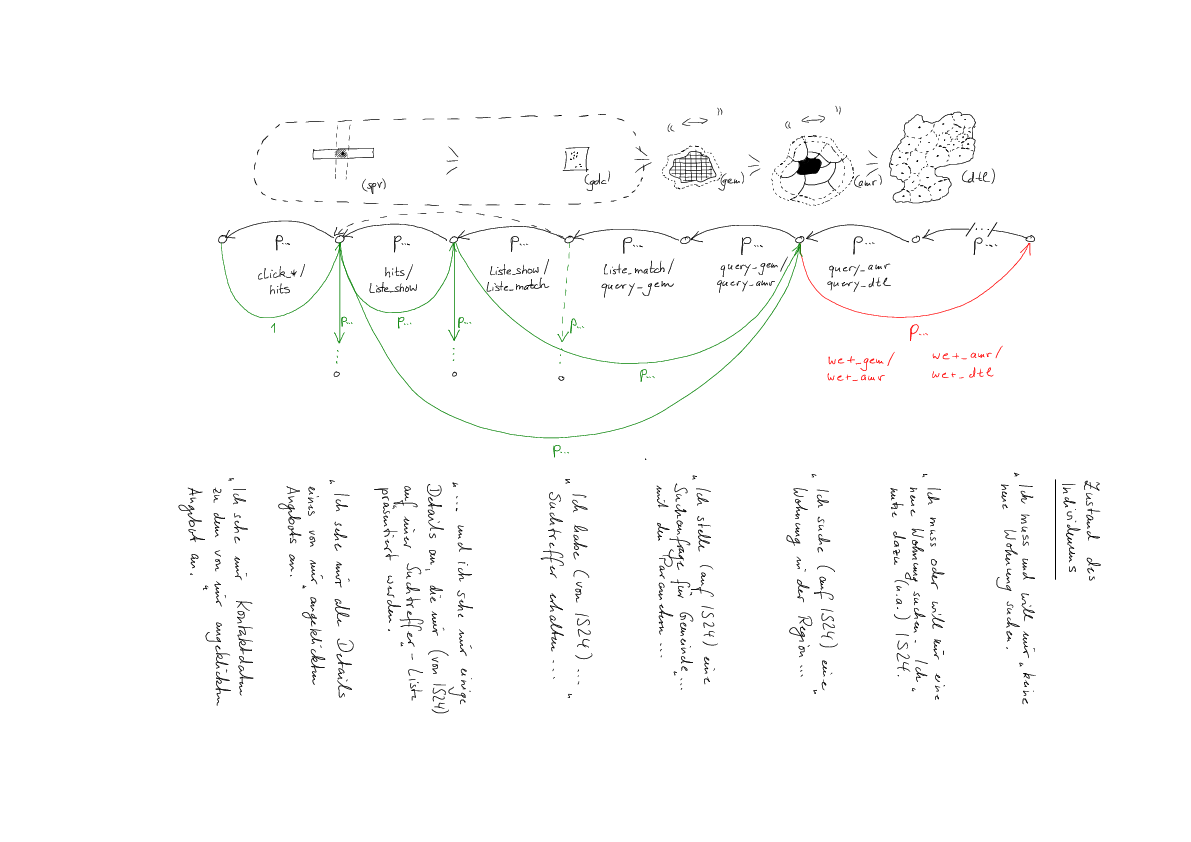 (spr)
(gdc)
(gem)
(amr)
(dtl)
P...
P...
P...
P...
P...
P...
P...
click_*/
hits
hits/
Liste_show
Liste_show/
Liste_match
Liste_match/
query_gem
query_gem/
query_amr
query_amr
query_dtl
1
P...
P...
P...
P...
P...
P...
P...
wet_gem/
wet_amr
wet_amr/
wet_dtl
Zustand des
Individuums
"Ich muss und will mir keine
neue Wohnung suchen."
"Ich muss oder will mir eine
neue Wohnung suchen. Ich
nutze dazu (u.a.) IS24."
"Ich suche (auf IS24) eine
Wohnung in der Region..."
"Ich stelle (auf IS24) eine
Suchanfrage für Gemeinde...
mit den Parametern..."
"Ich habe (von IS24)...
Suchtreffer erhalten..."
"... und ich sehe mir einige
Details an, die mir (von IS24)
auf einer Suchtreffer-Liste
präsentiert werden."
"Ich sehe mir alle Details
eines von mir angeklickten
Angebots an."
"Ich sehe mir Kontaktdaten
zu dem von mir angeklickten
Angebot an."